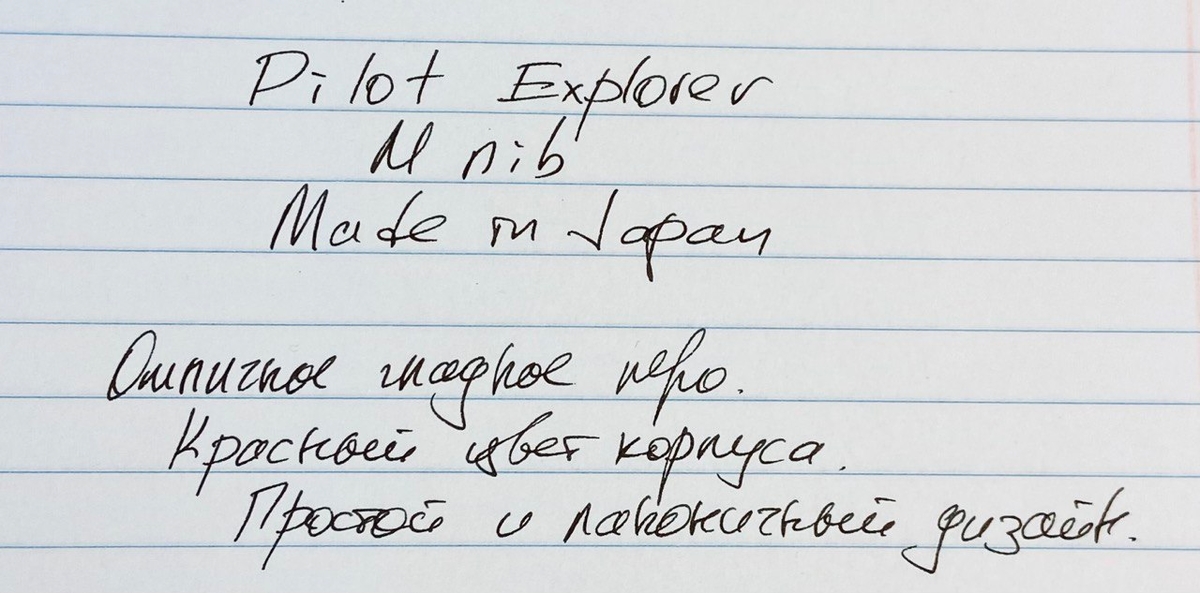 Pilot Explorer
M nib
Made in Japan
Отличное гладкое перо.
Красный цвет корпуса.
Простой и лаконичный дизайн.